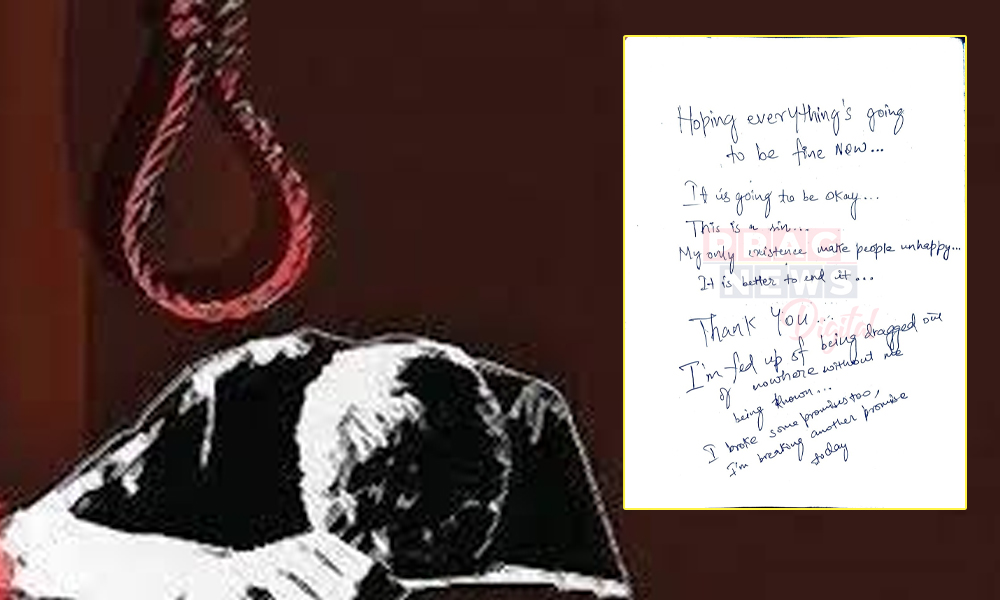 Hoping everything's going
to be fine now...
It is going to be okay...
This is a sin...
My only existence make people unhappy...
It is better to end it...
Thank You...
I'm fed up of being dragged out
of nowhere without me
being known...
I broke some promises too,
I'm breaking another promise
today
NEWS
Digital